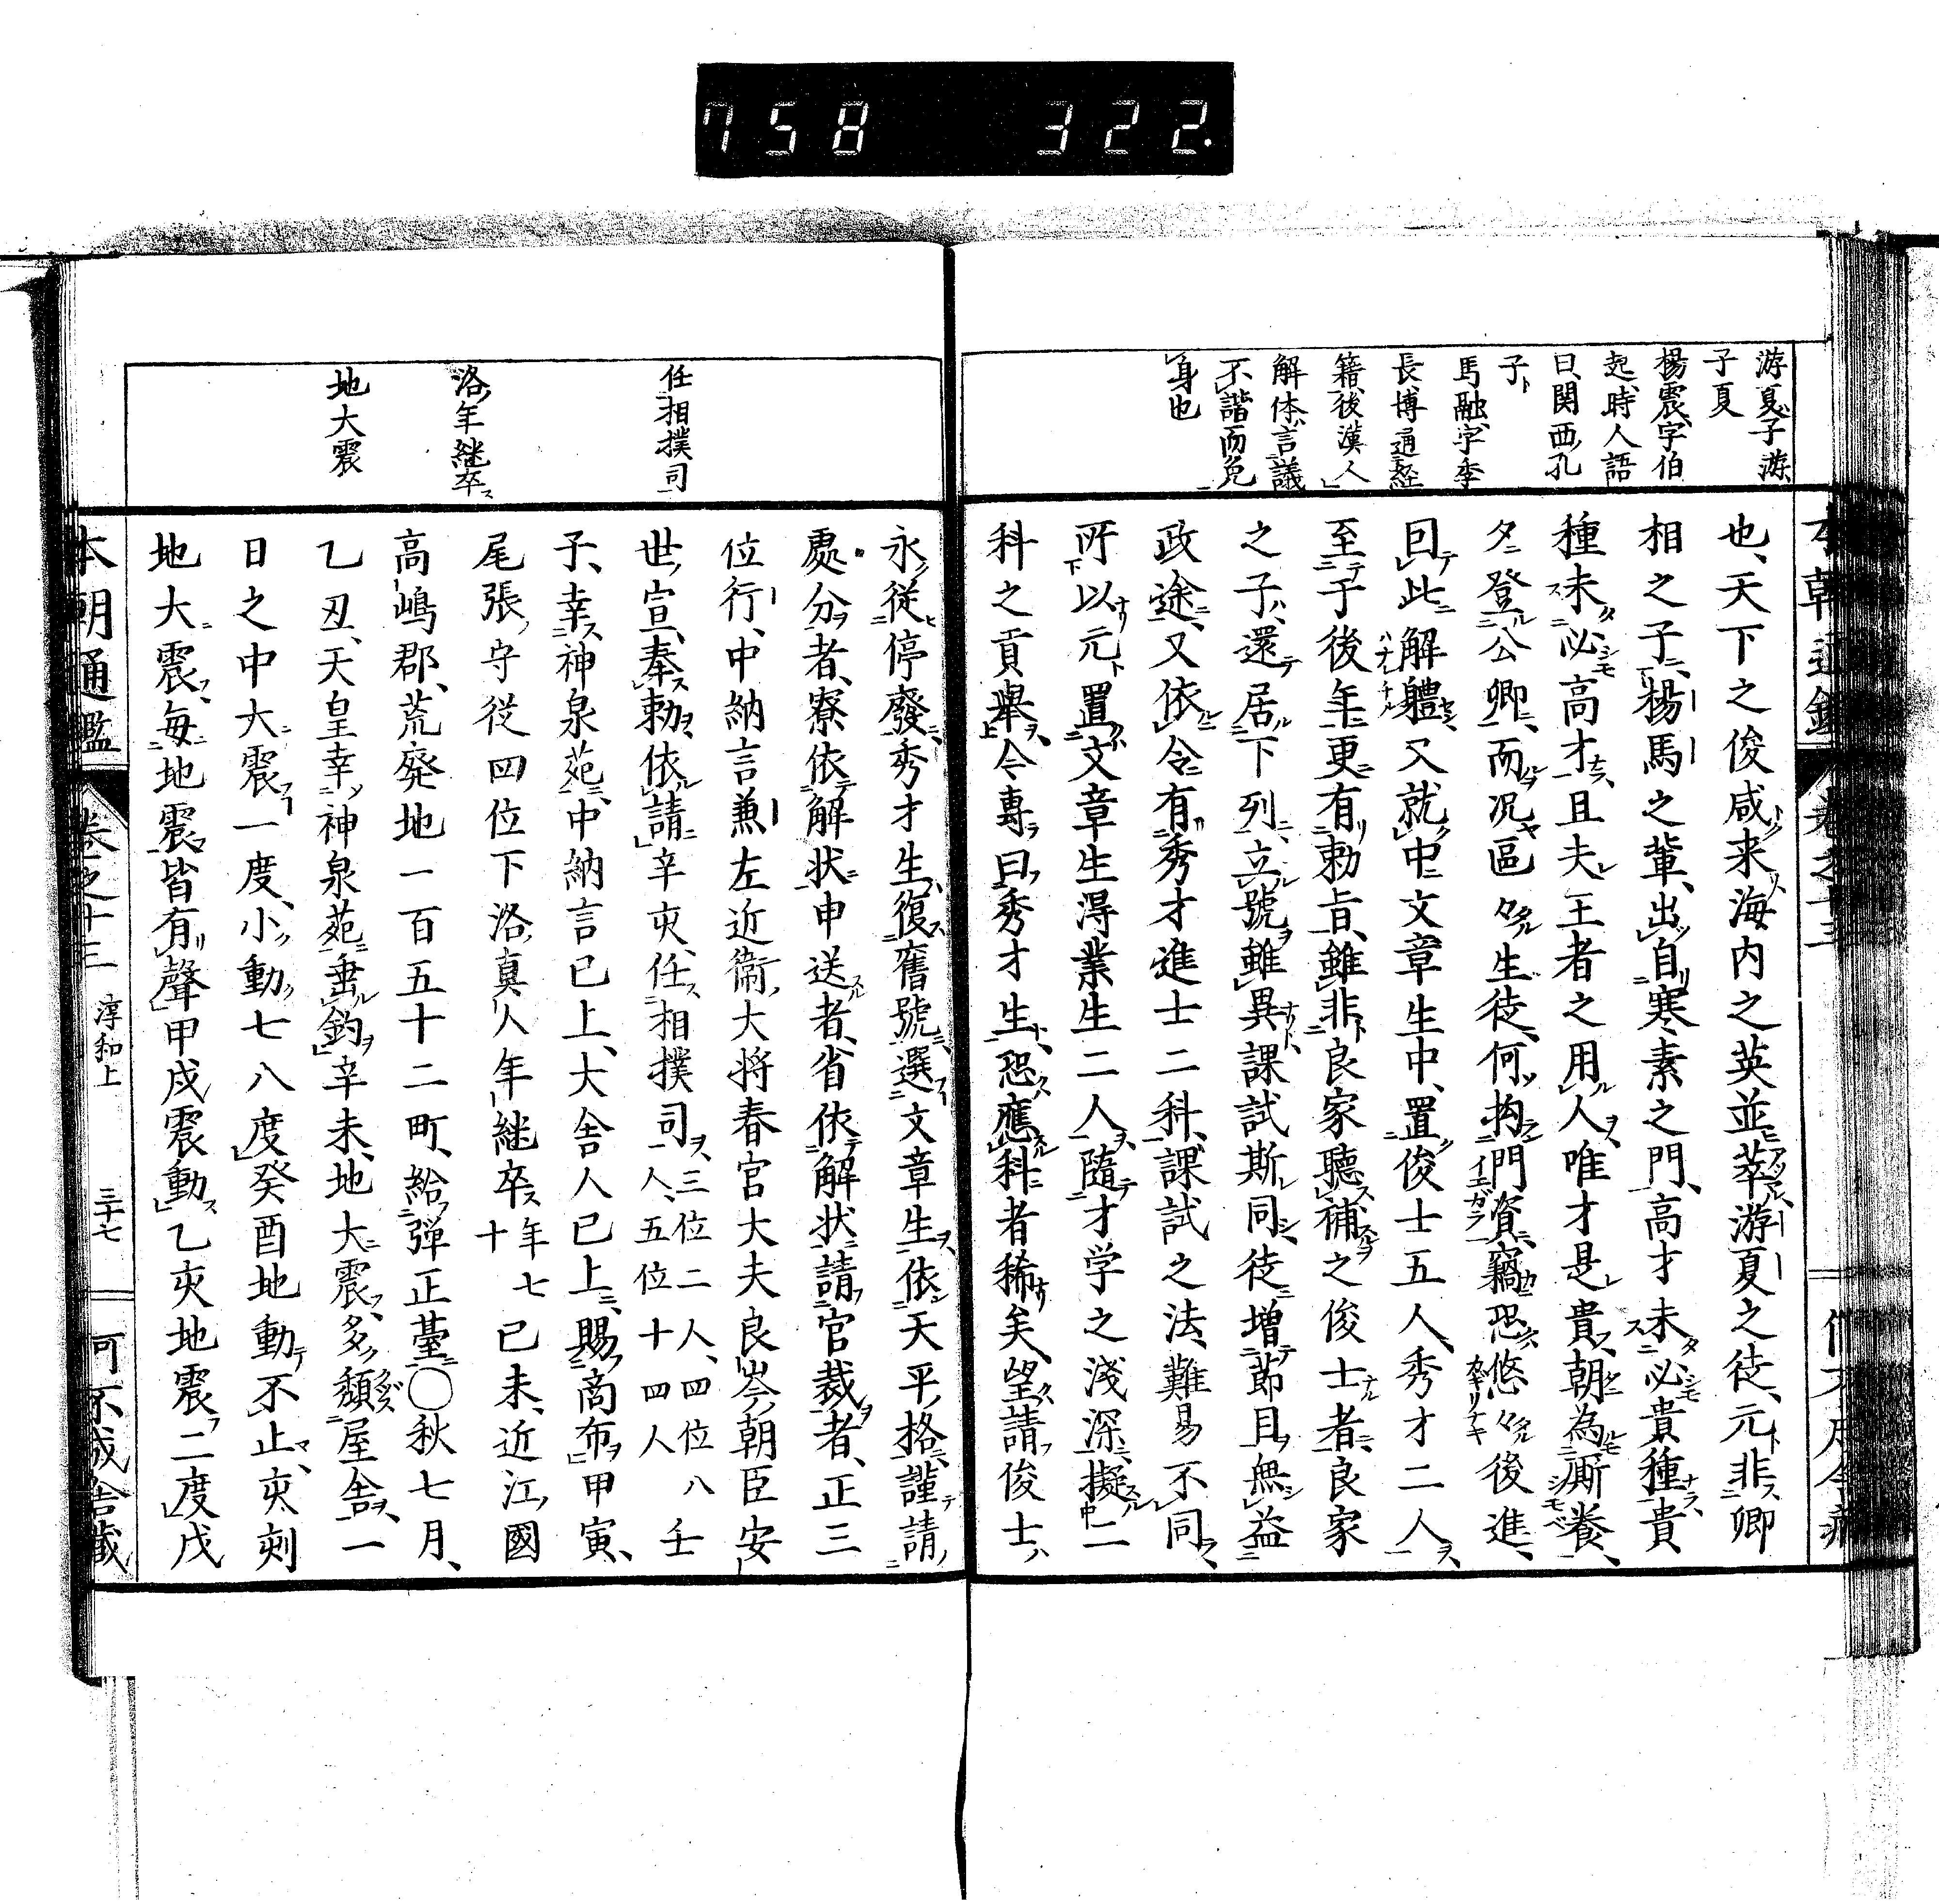 758 322.
游夏子游、
子夏
楊震、字伯
起、時人語
曰、関西孔
子
馬融、字季
長、博通経
籍、後漢人
解体、言議
不諧而免
身也
也、天下之俊咸来、海内之英並萃、游夏之徒、元非卿
相之子、楊馬之輩、出自寒素之門、高才未必貴種、貴
種未必高才、且夫王者之用人、唯才是貴、朝為厮養、
夕登公卿、而况區々生徒、何拘門資、竊恐悠々後進、
回此解體、又就中文章生中、置俊士五人、秀才二人、
至于後年、更有勅旨、雖非良家、聽補之俊士者、良家
之子、還居下列、立號雖異、課試斯同、徒増節目、無益
政途、又依令有秀才進士二科、課試之法、難易不同、
所以元置文章生得業生二人、隨才学之浅深、擬二
科之貢舉、今專曰秀才生、恐應科者稀矣、望請俊士
任相撲司
洛年継卒
地大震
永從停廢、秀才生復舊號、選文章生、依天平格、謹請
處分者、寮依解状申送者、省依解状、請官裁者、正三
位行中納言兼左近衞大将春宮大夫良岑朝臣安
世宣、奉勅依請、辛亥、任相撲司、三位二人、四位八
一人、五位十四人
壬
子、幸神泉苑、中納言已上、大舎人已上、賜商布、甲寅、
尾張守從四位下洛真人年継卒年七
十
己未、近江國
高嶋郡、荒廃地一百五十二町、給弾正臺〇秋七月、
乙丑、天皇幸神泉苑垂釣、辛未、地大震、多頽屋舎、一
日之中大震一度、小動七八度、癸酉地動不止、亥刻
地大震、毎地震皆有聲、甲戌震動、乙亥地震二度、戊
本朝通鑑
卷之十三
淳和上
三十七
可不成舎蔵